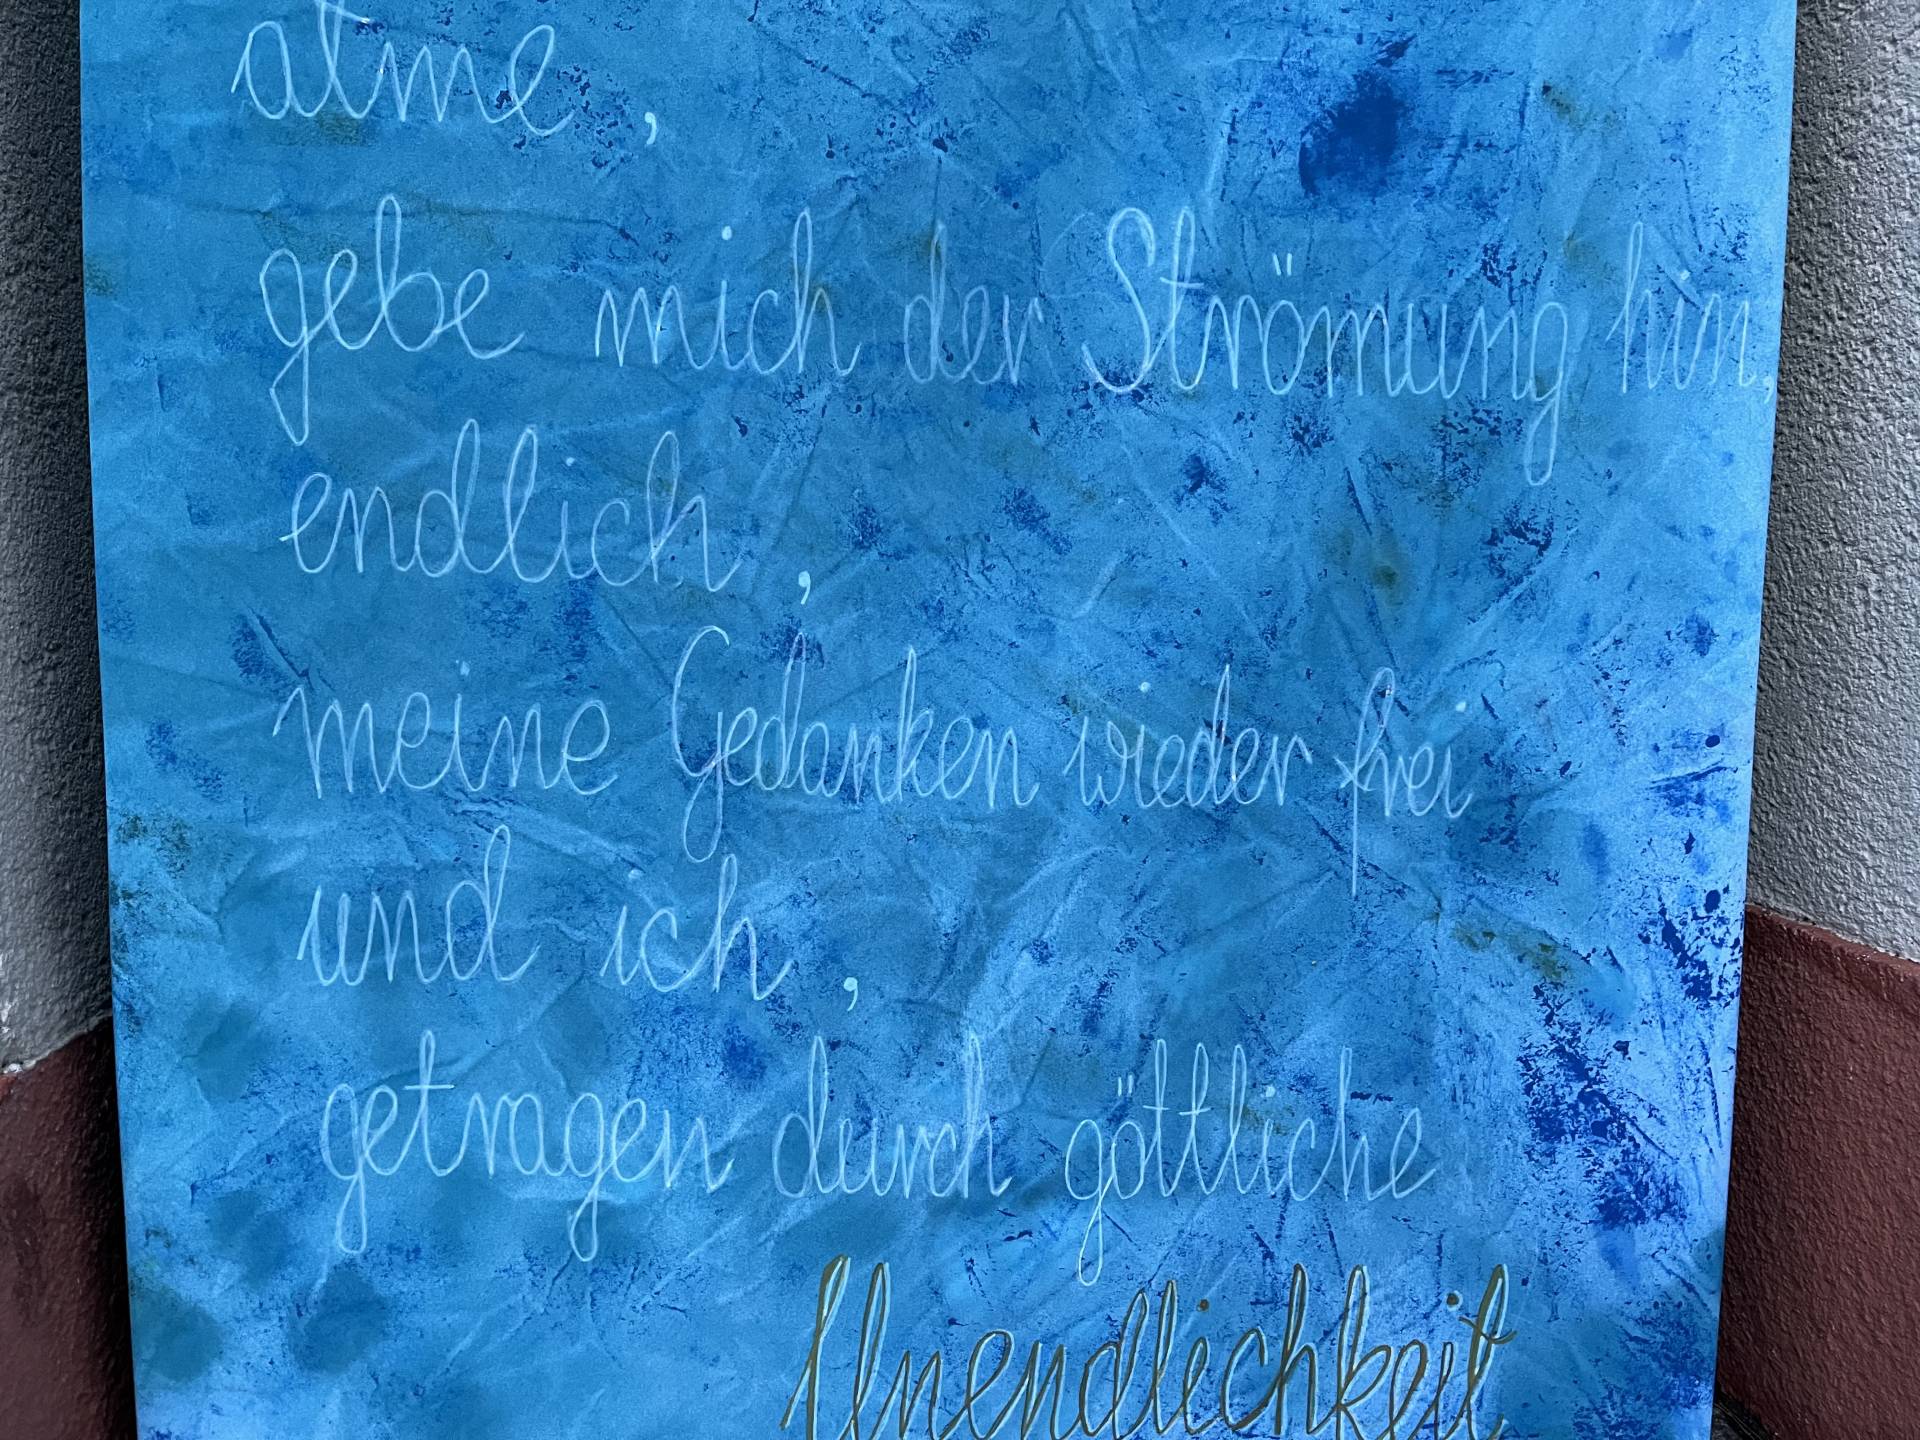 atme,
gebe mich der Strömung hin,
endlich,
meine Gedanken wieder frei
und ich,
getragen durch göttliche
Unendlichkeit